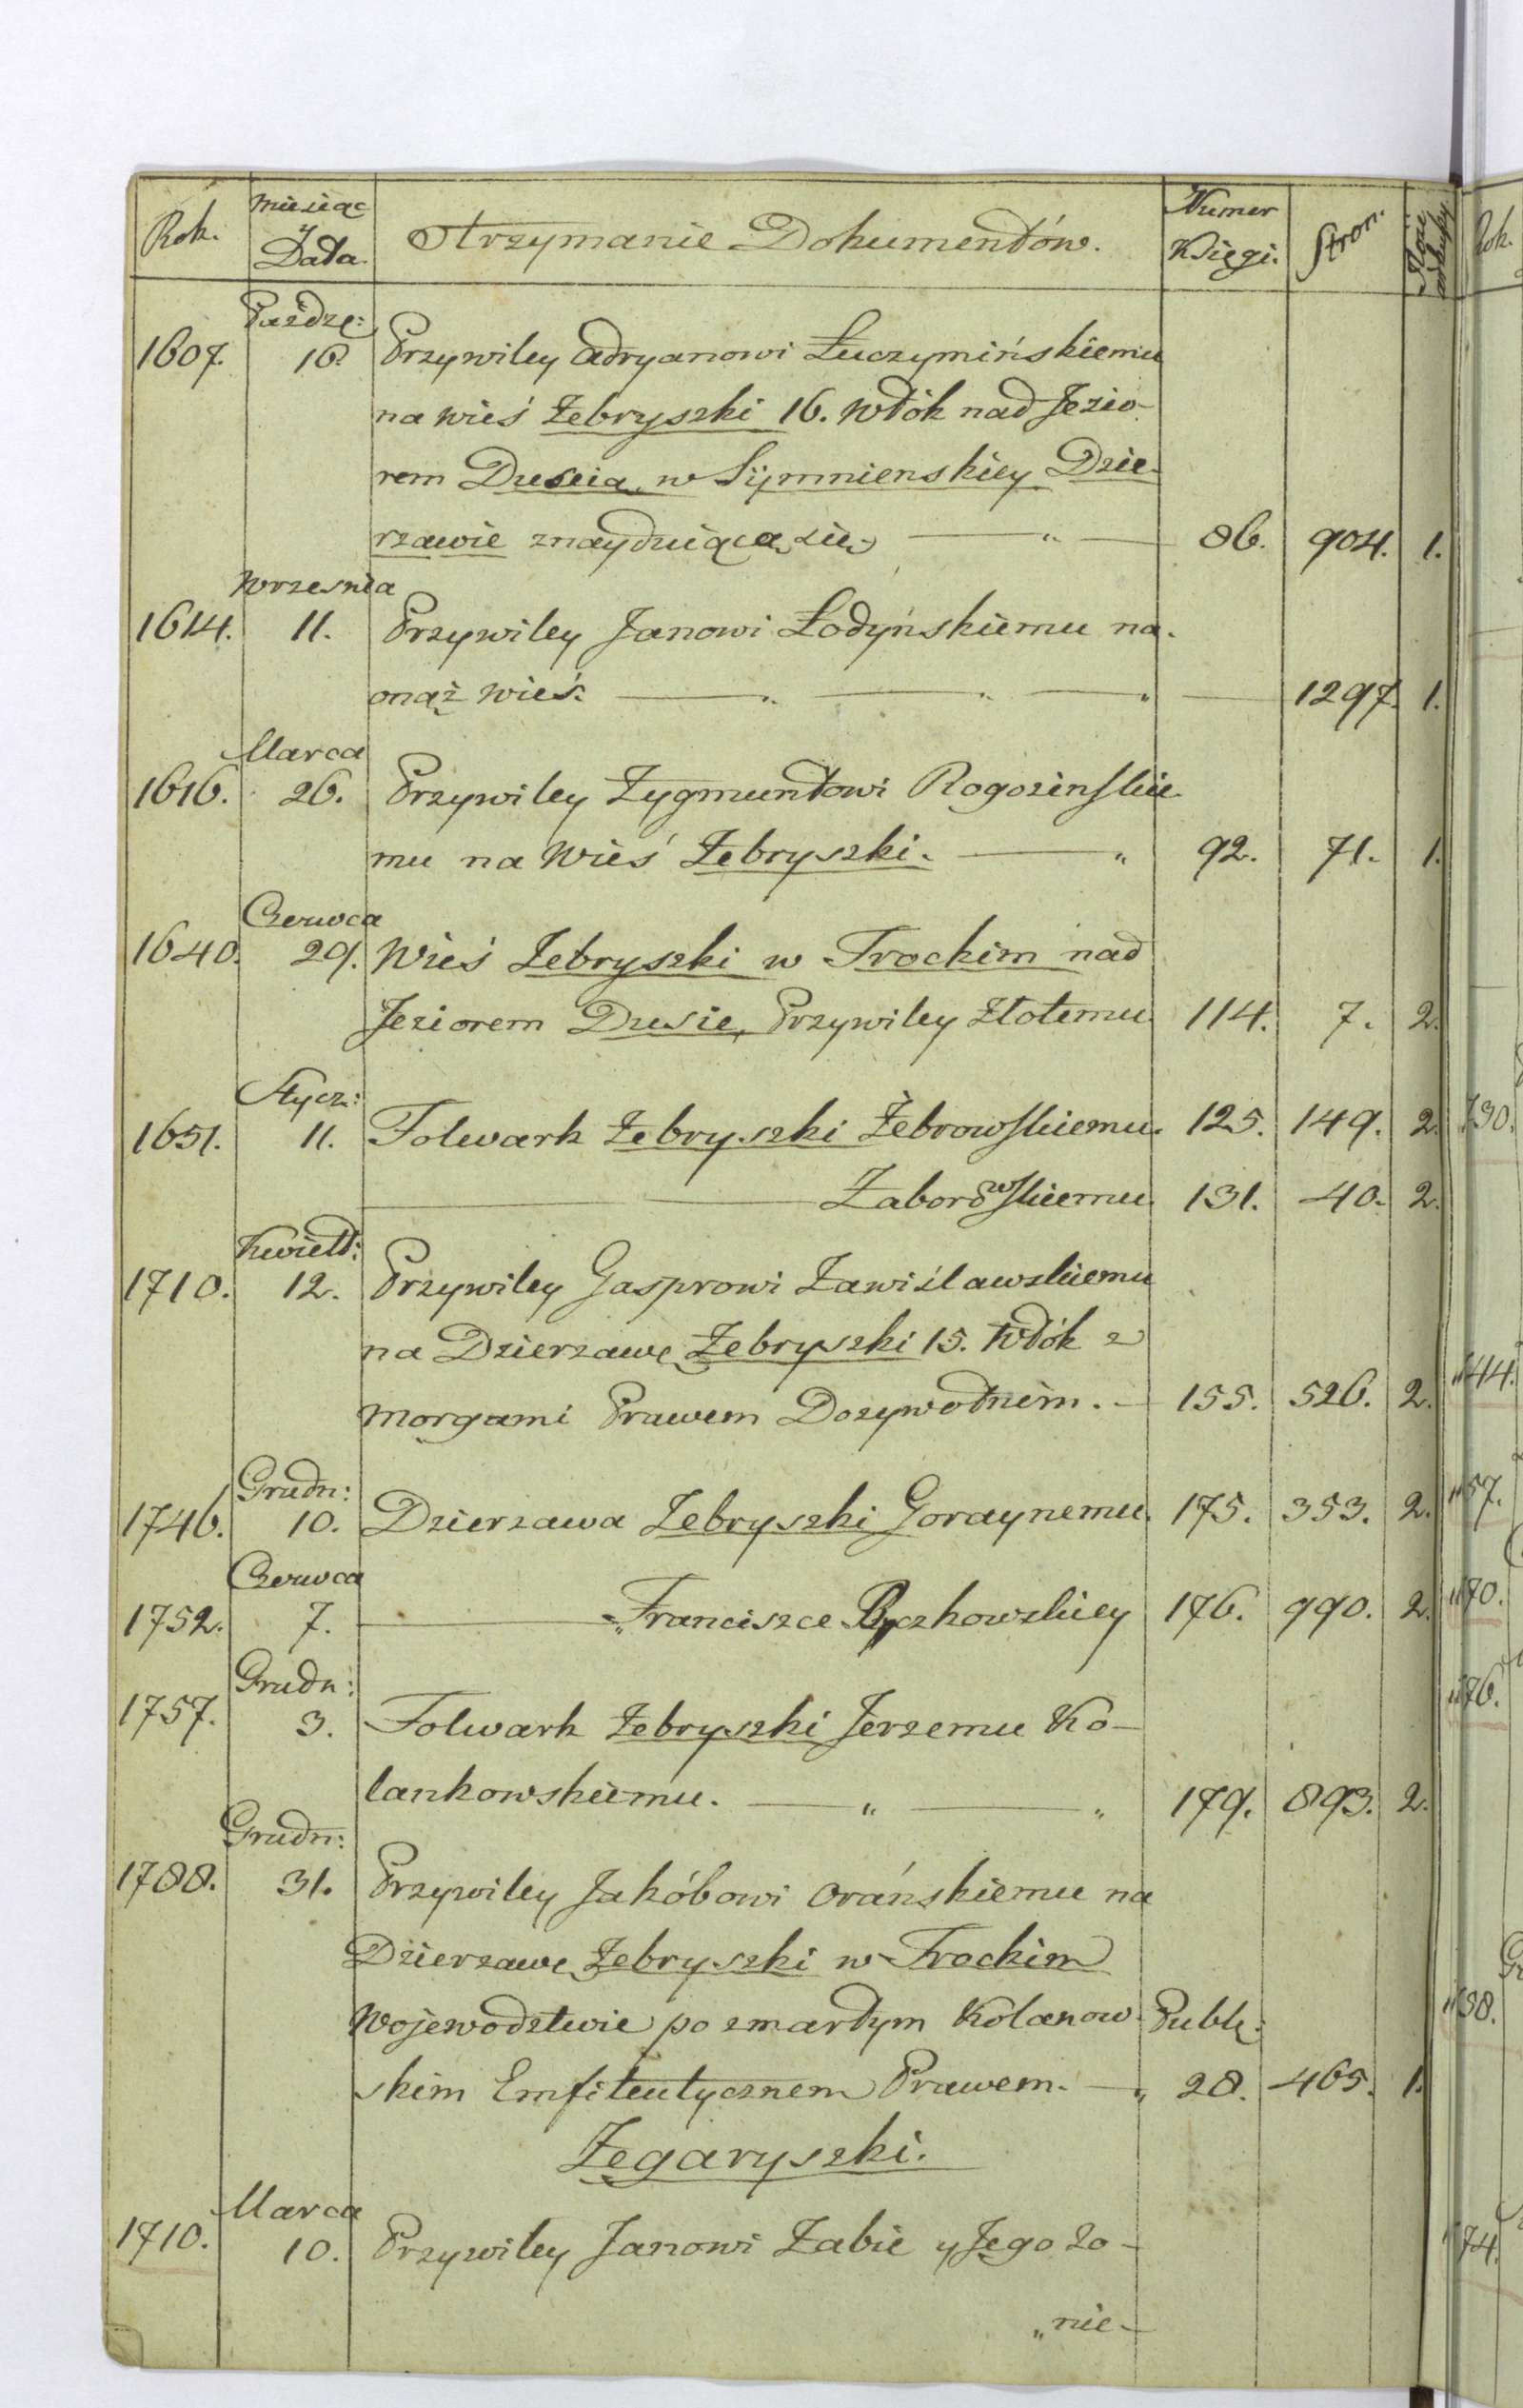 Rok. Miesiąc y Data. Otrzymanie Dokumentów. Numer Księgi. Stron.
Paźdz:
1607. 16. Przywiley Adryanowi Łuczymińskiemu
na wieś Żebryszki 16. Włók nad Jezio-
rem Duscia w Sijmnienskiey Dzie-
rzawie znayduiąca się 86. 904. 1.
Wrzesnia
1614. 11. Przywiley Janowi Łodyńskiemu na
onąż wieś. 1297. 1.
Marca
1616. 26. Przywiley Zygmuntowi Rogozinskie
mu na Wieś Żebryszki. 92. 71. 1.
Czerwca
1640. 29. Wieś Żebryszki w Trockim nad
Jeziorem Dusie, Przywiley Złotemu 114. 7. 2.
Stycz:
1651. 11. Folwark Żebryszki Żebrowskiemu. 125. 149. 2.
Zaborowskiemu. 131. 40. 2.
Kwiet:
1710. 12. Przywiley Gasprowi Zawiślawskiemu
na Dzierzawę Żebryszki 15. Włók z
morgami Prawem Dozywotnim. 155. 526. 2.
Grudn:
1746. 10. Dzierzawa Żebryszki Goraynemu. 175. 353. 2.
Czerwca
1752. 7. Franciszce 176. 990. 2.
Grudn:
1757. 3. Folwark Żebryszki Jerzemu Ko-
lankowskiemu. 179. 893. 2.
Grudn:
1788. 31. Przywiley Jakóbowi Orańskiemu na
Dzierzawę Żebryszki w Trockim
Wojewodztwie po zmarłym Kolanow- Publ:
skim Emfiteutycznem Prawem. 28. 465. 1.
Żegaryszki.
Marca
1710. 10. Przywiley Janowi Żabie y Jego żo-
nie